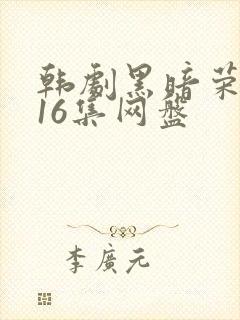 韩剧黑暗荣
16集网盘
李廣元